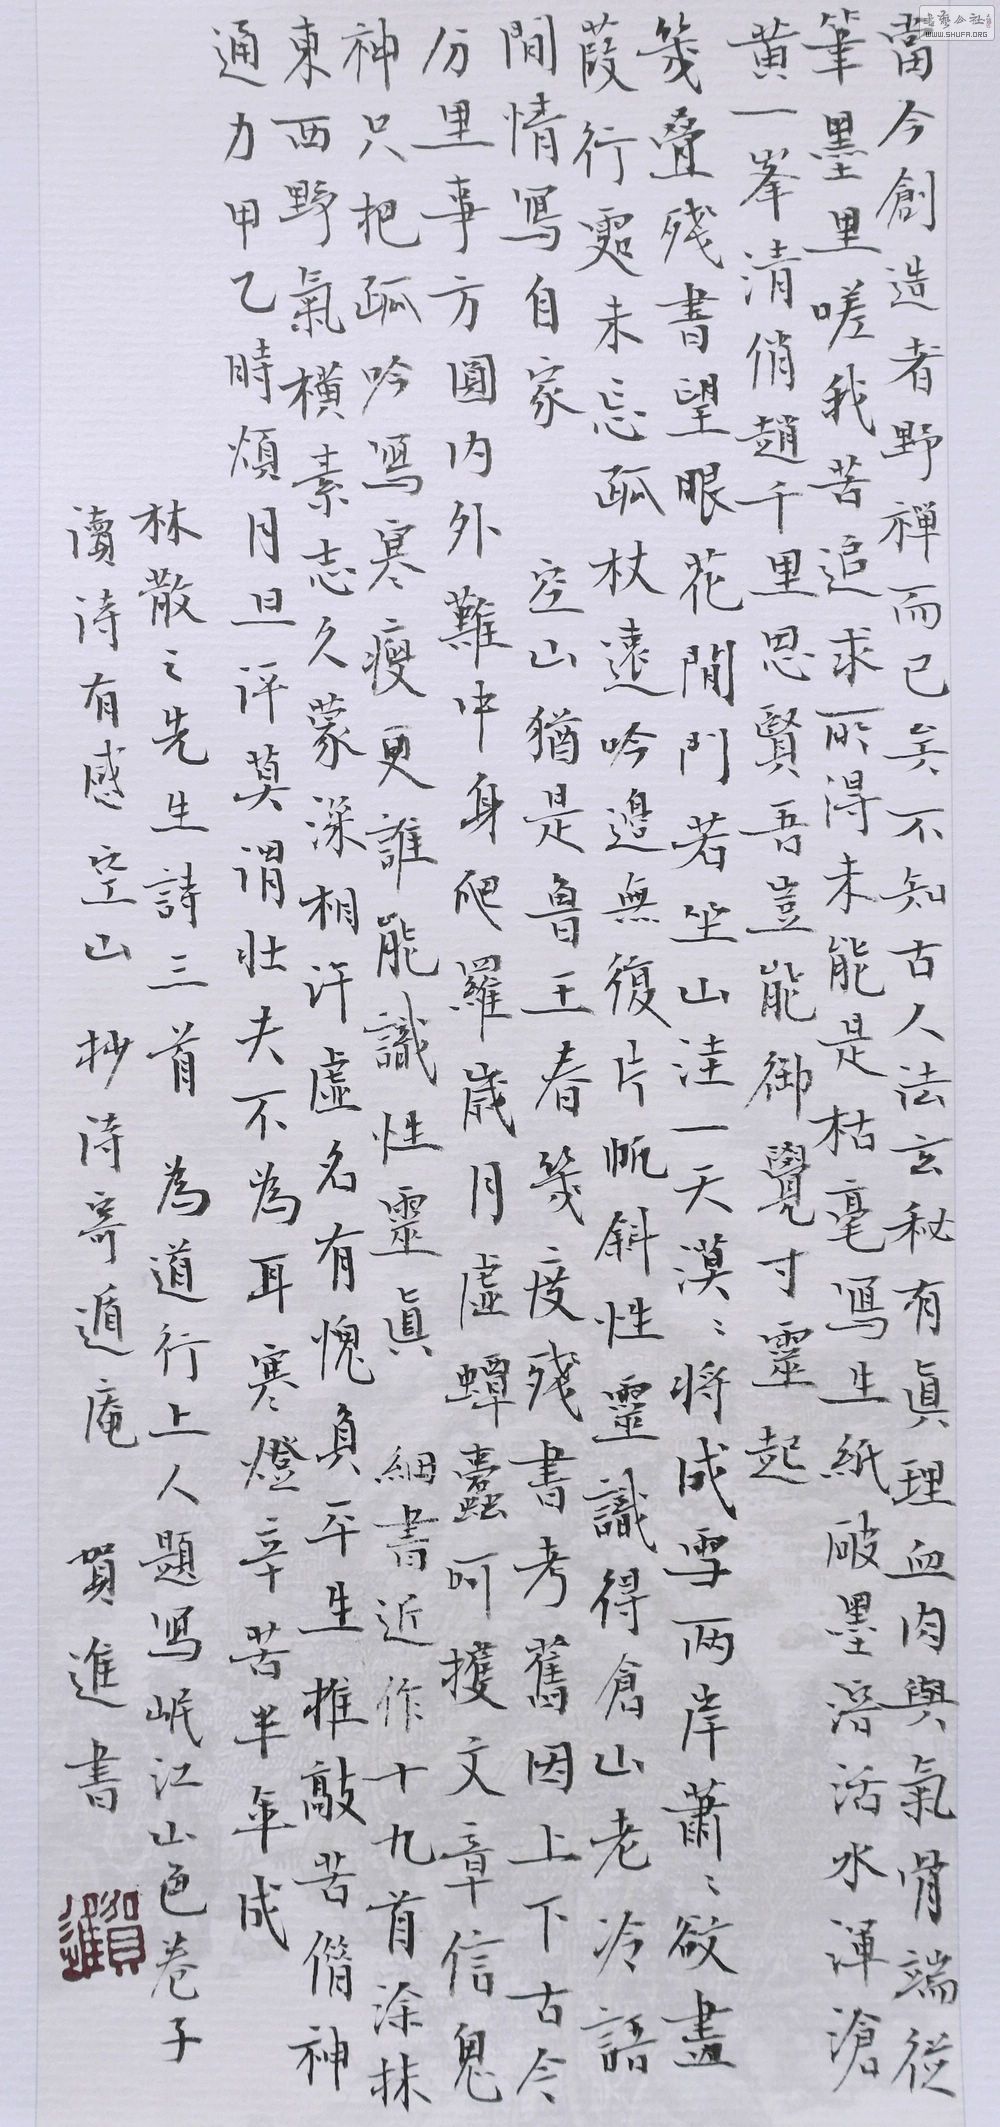 當今創造者野禪而已矣不知古人法玄秘有真理血肉與氣骨端從
筆墨里嗟我苦追求所得未能是枯毫寫生紙破墨潘活水渾滄
黃一峯清俏趙千里思賢吾豈能御覺寸靈起
幾疊殘書望眼花閒門若坐山洼一天漠〻將成雪兩岸蕭〻欲盡
葭行處未忘孤杖遠吟邊無復片帆斜性靈識得倉山老冷語
閒情寫自家 空山猶是魯王春幾度殘書考舊因上下古今
分里事方圓内外難中身爬羅歲月虛蟫蠹呵擁文章信鬼
神只把孤吟寫寒瘦更誰能識性靈真 細書近作十九首涂抹
東西野氣橫素志久蒙深相許虛名有愧負平生推敲苦借神
通力甲乙時煩月旦評莫謂壯夫不為耳寒燈辛苦半年成
林散之先生詩三首 為道行上人題寫岷江山色卷子
讀詩有感 空山 抄詩寄遁庵 賀進書
賀進
書藝公社
WWW.SHUFA.ORG